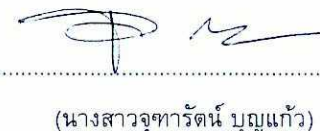 (นางสาวจุฑารัตน์ บุญแก้ว)